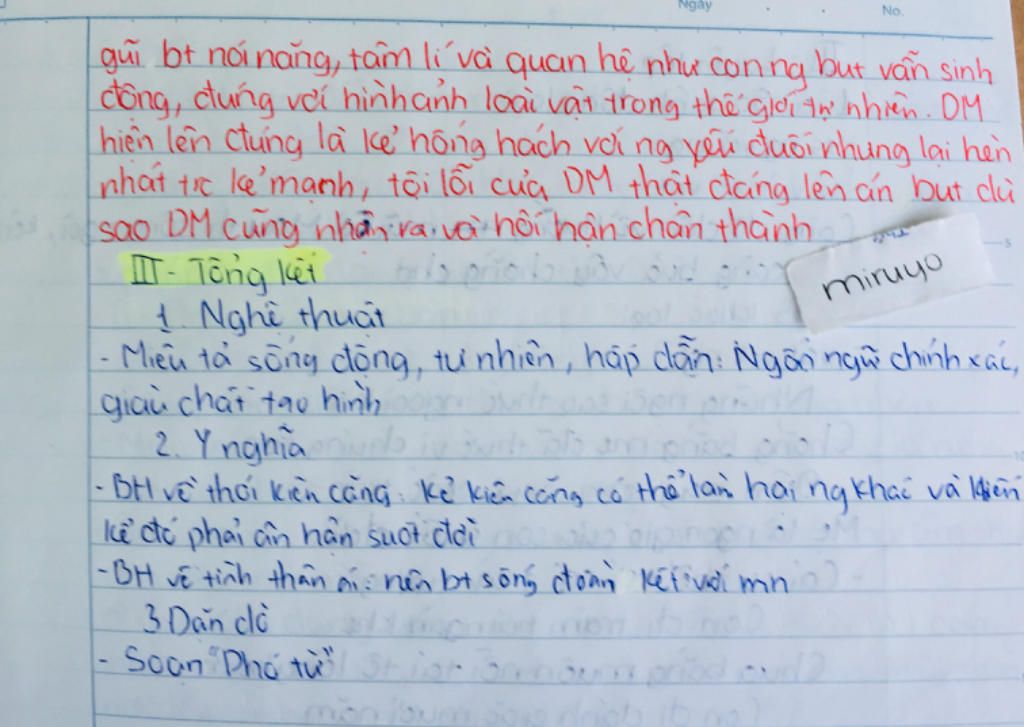 Ngày
No.
gũi bt nói năng, tâm lí và quan hệ như con ng but vẫn sinh
động, đúng với hình ảnh loài vật trong thế giới tự nhiên. DM
hiện lên đúng là kẻ hống hách với ng yếu đuối nhưng lại hèn
nhát trc kẻ mạnh, tội lỗi của DM thật đáng lên án but dù
sao DM cũng nhận ra và hối hận chân thành
miruyo
III - Tổng kết
1. Nghệ thuật
- Miêu tả sống động, tự nhiên, hấp dẫn. Ngôn ngữ chính xác,
giàu chất tạo hình
2. Ý nghĩa
- BH về thói kiêu căng. Kẻ kiêu căng có thể làm hại ng khác và khiến
kẻ đó phải ân hận suốt đời
- BH về tình thân ái: nên bt sống đoàn kết với mn
3 Dặn dò
- Soạn "Phó từ"